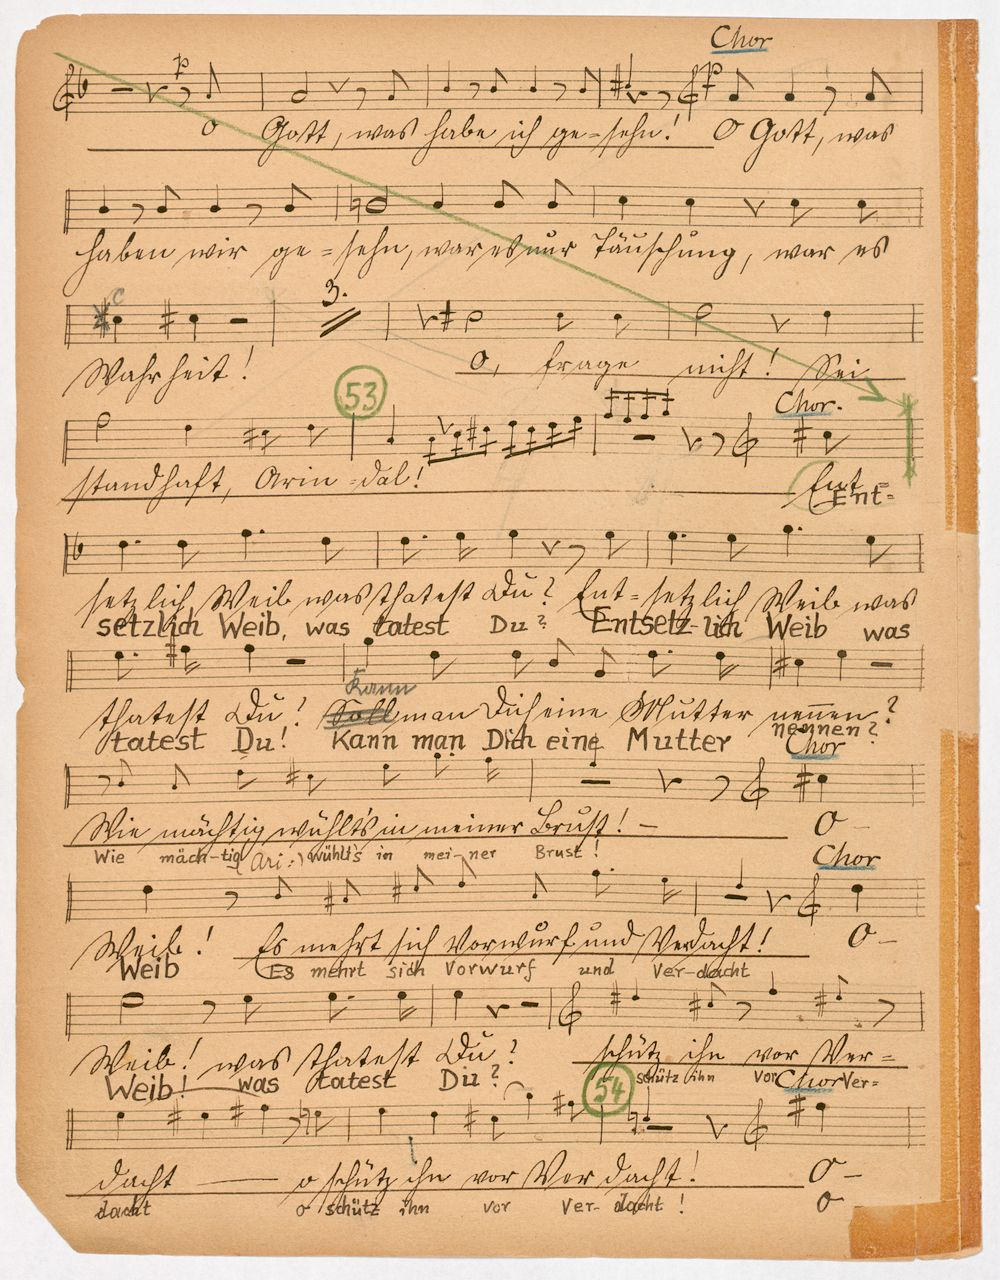 Chor
p p
O Gott, was habe ich ge-sehn! O Gott, was
haben wir ge-sehn, war es nur Täuschung, war es
c 3.
Wahrheit! O, frage nicht! Sei
53 Chor.
standhaft, Arin-dal! Ent-
Ent-
setzlich Weib was thatest Du? Ent-setzlich Weib was
setzlich Weib, was tatest Du? Entsetz-lich Weib was
Kann
thatest Du? Soll man Dich eine Mutter nennen?
nennen?
tatest Du! Kann man Dich eine Mutter
Chor
Wie mächtig wühlt's in meiner Brust! – O –
Wie mäch-tig wühlt's in mei-ner Brust!
(Ari:) Chor
Weib! Es mehrt sich Vorwurf und Verdacht! O –
Weib Es mehrt sich Vorwurf und Ver-dacht
Weib! was thatest Du? schütz ihn vor Ver-
Weib! was tatest Du? schütz ihn vor Ver-
54 Chor
dacht — o schütz ihn vor Verdacht! O –
dacht o schütz ihn vor Ver-dacht! O